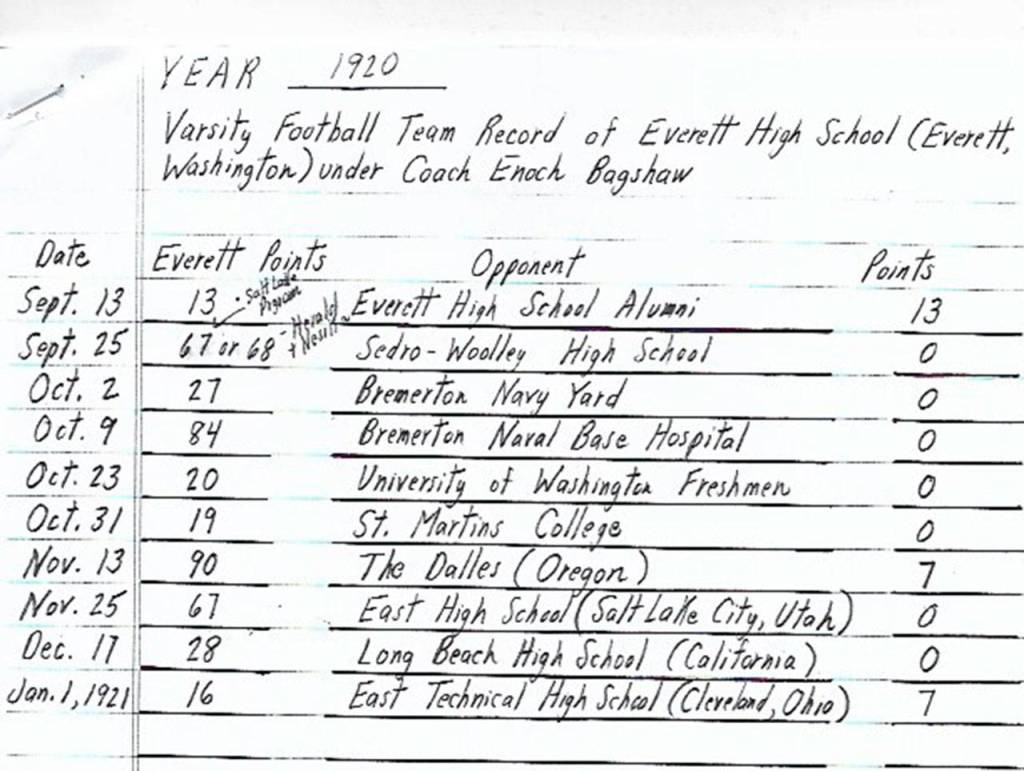 YEAR 1920
Varsity Football Team Record of Everett High School (Everett,
Washington) under Coach Enoch Bagshaw
Date Everett Points Opponent Points
Sept. 13 13 Everett High School Alumni 13
Salt Lake
Sept. 25 67 or 68 - Herald Sedro-Woolley High School 0
Oct. 2 27 Bremerton Navy Yard 0
Oct. 9 84 Bremerton Naval Base Hospital 0
Oct. 23 20 University of Washington Freshmen 0
Oct. 31 19 St. Martins College 0
Nov. 13 90 The Dalles (Oregon) 7
Nov. 25 67 East High School (Salt Lake City, Utah) 0
Dec. 17 28 Long Beach High School (California) 0
Jan. 1, 1921 16 East Technical High School (Cleveland, Ohio) 7